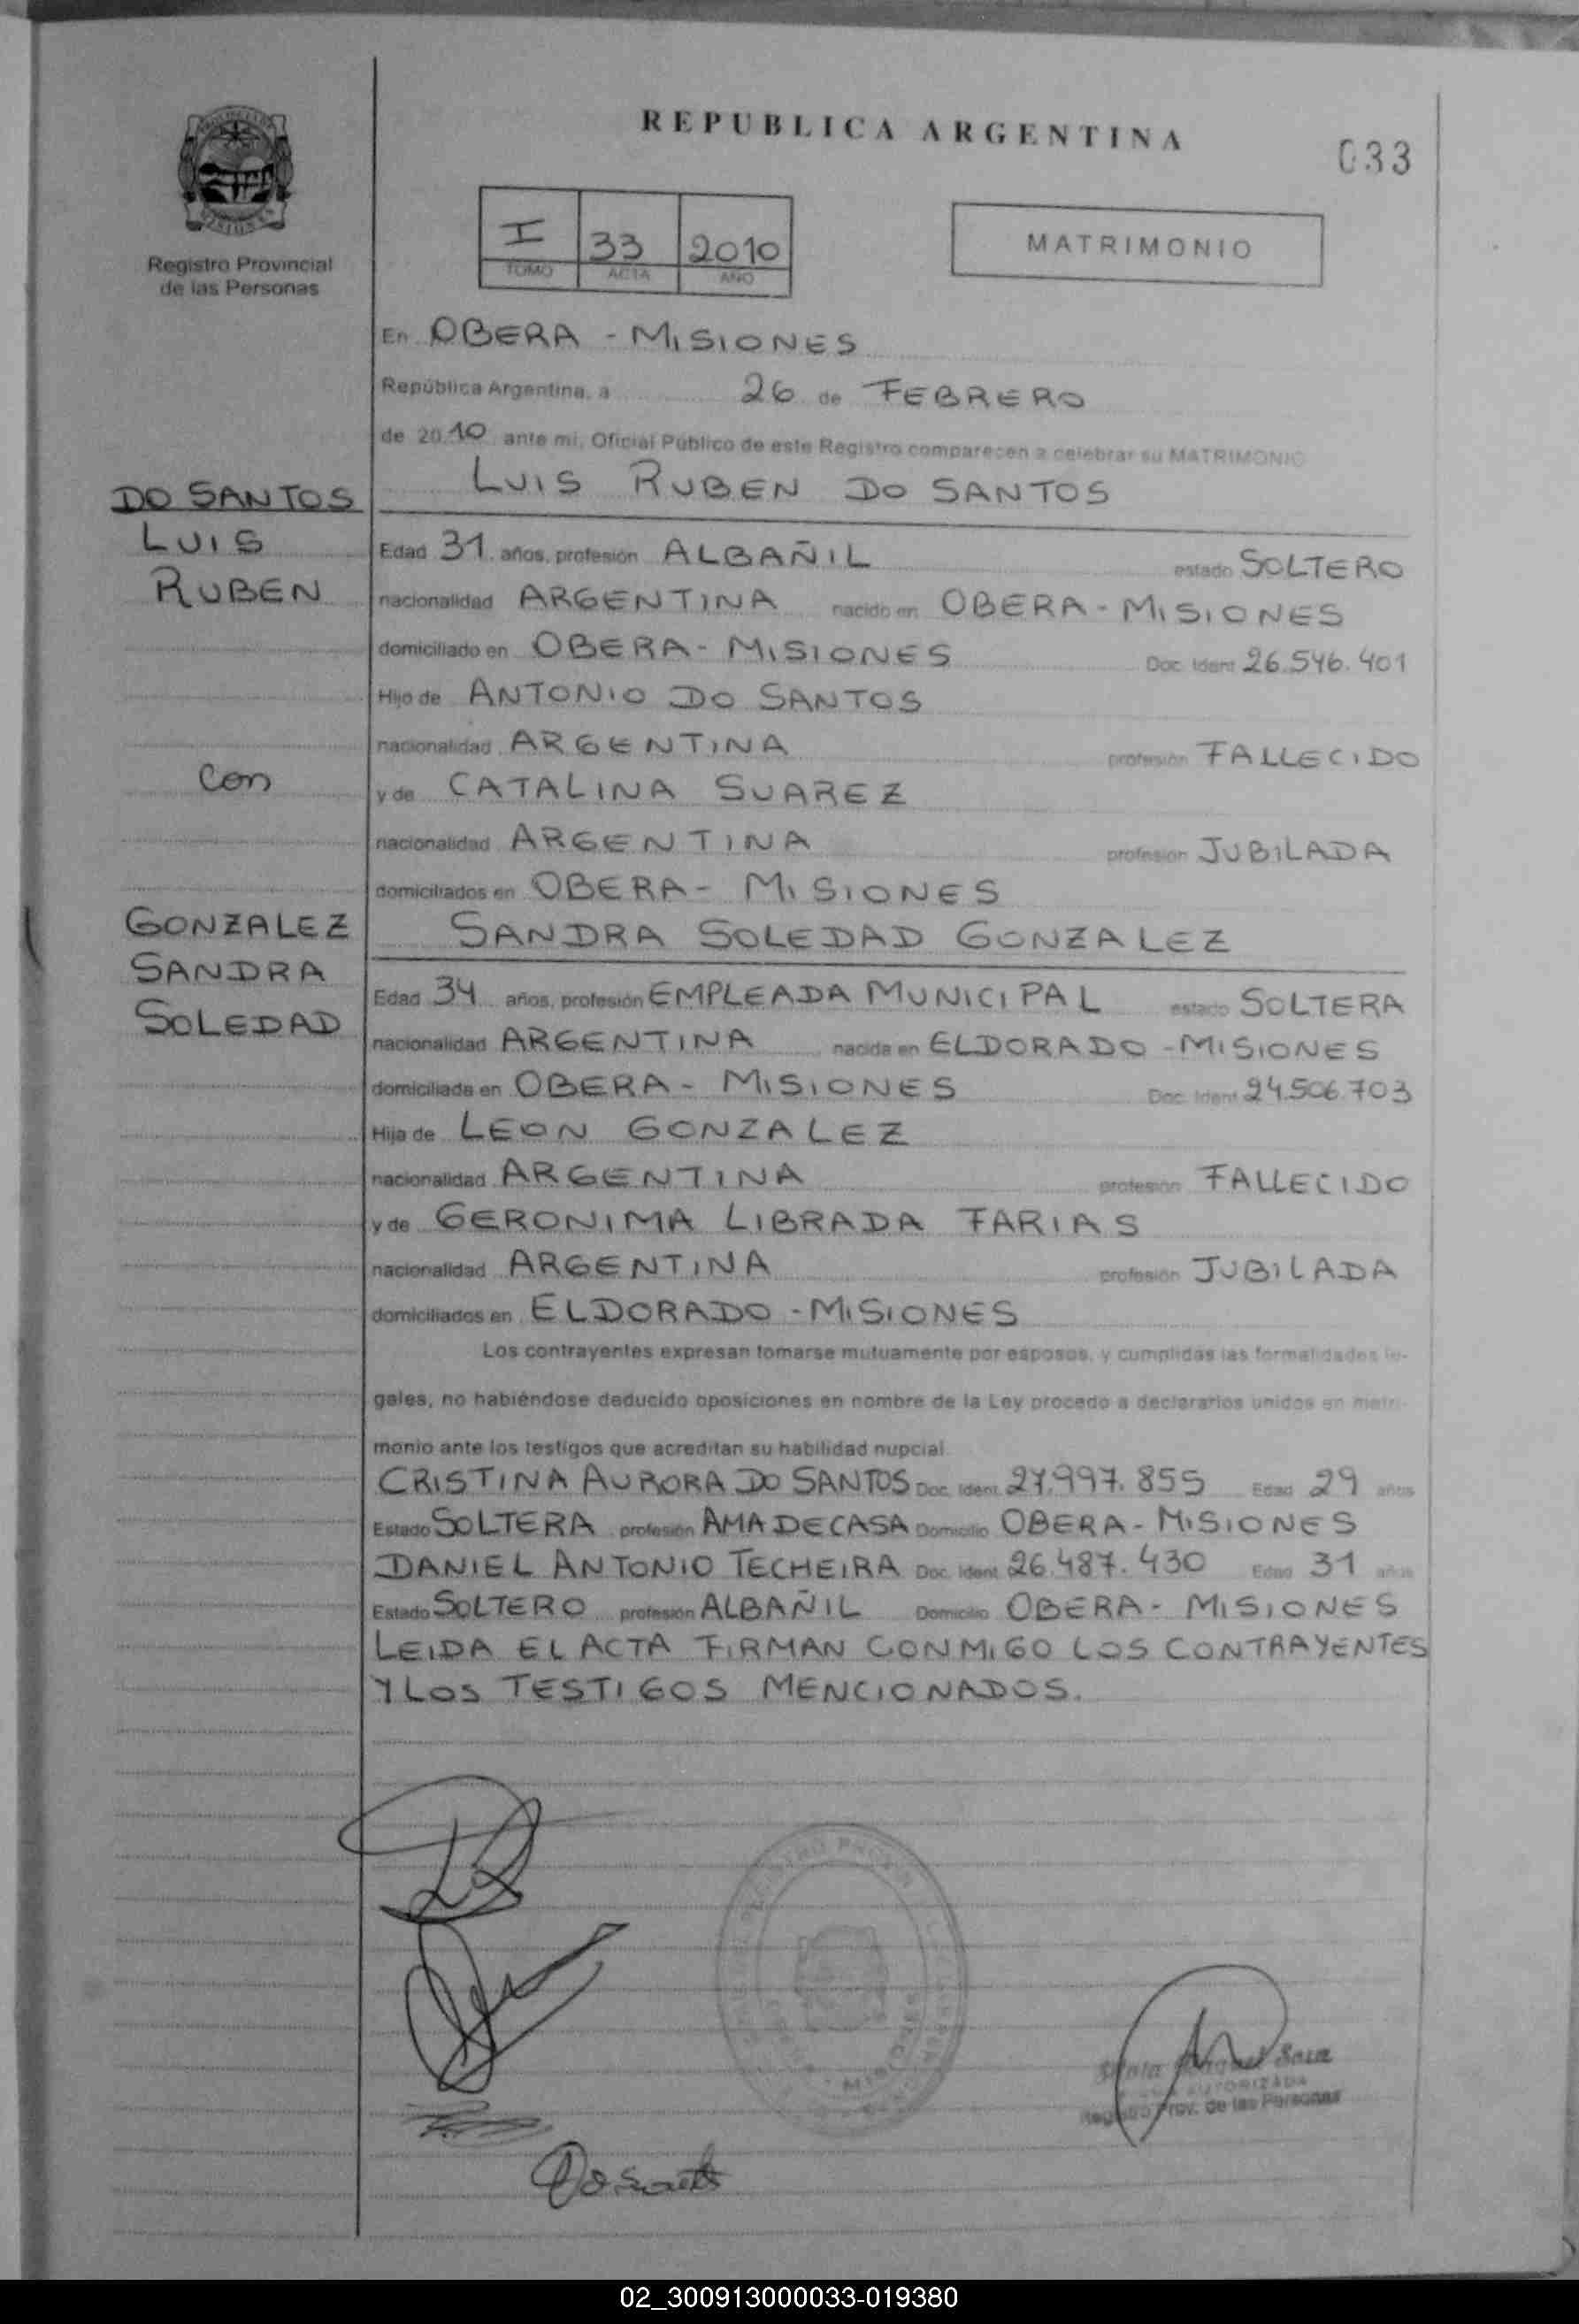 REPUBLICA ARGENTINA
033
Registro Provincial
de las Personas
I 33 2010
TOMO ACTA AÑO
MATRIMONIO
En OBERA - MISIONES
República Argentina, a 26 de FEBRERO
de 2010 ante mi, Oficial Público de este Registro comparecen a celebrar su MATRIMONIO
DO SANTOS
LUIS
RUBEN
con
GONZALEZ
SANDRA
SOLEDAD
LUIS RUBEN DO SANTOS
Edad 31 años, profesión ALBAÑIL estado SOLTERO
nacionalidad ARGENTINA nacido en OBERA - MISIONES
domiciliado en OBERA - MISIONES Doc. Ident 26.546.401
Hijo de ANTONIO DO SANTOS
nacionalidad ARGENTINA profesión FALLECIDO
y de CATALINA SUAREZ
nacionalidad ARGENTINA profesión JUBILADA
domiciliados en OBERA - MISIONES
SANDRA SOLEDAD GONZALEZ
Edad 34 años, profesión EMPLEADA MUNICIPAL estado SOLTERA
nacionalidad ARGENTINA nacida en ELDORADO - MISIONES
domiciliada en OBERA - MISIONES Doc. Ident 24.506.703
Hija de LEON GONZALEZ
nacionalidad ARGENTINA profesión FALLECIDO
y de GERONIMA LIBRADA FARIAS
nacionalidad ARGENTINA profesión JUBILADA
domiciliados en ELDORADO - MISIONES
Los contrayentes expresan tomarse mutuamente por esposos, y cumplidas las formalidades le-
gales, no habiéndose deducido oposiciones en nombre de la Ley procedo a declararlos unidos en matri-
monio ante los testigos que acreditan su habilidad nupcial
CRISTINA AURORA DO SANTOS Doc. Ident. 27.997.855 Edad 29 años
Estado SOLTERA profesión AMA DE CASA Domicilio OBERA - MISIONES
DANIEL ANTONIO TECHEIRA Doc. Ident. 26.487.430 Edad 31 años
Estado SOLTERO profesión ALBAÑIL Domicilio OBERA - MISIONES
LEIDA EL ACTA FIRMAN CONMIGO LOS CONTRAYENTES
Y LOS TESTIGOS MENCIONADOS.
AUTORIZADA
Registro Prov. de las Personas
Do Santos
02_300913000033-019380